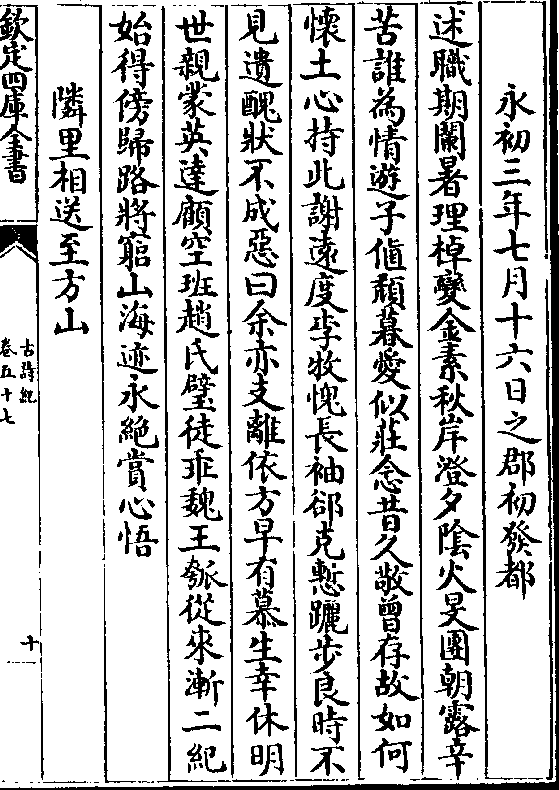 永初三年七月十六日之郡初發都
述職期闌暑理棹變金素秋岸澄夕陰火旻團朝露辛
苦誰為情遊子值頹暮愛似莊念昔久敬曾存故如何
懷土心持此謝遠度李牧愧長袖郤克慙躧步良時不
見遺醜狀不成惡曰余亦支離依方早有慕生幸休明
世親蒙英達顧空班趙氏璧徒乖魏王瓠從來漸二紀
始得傍歸路將窮山海迹永絶賞心悟
隣里相送至方山
欽定四庫全書
古詩紀
卷五十七
十